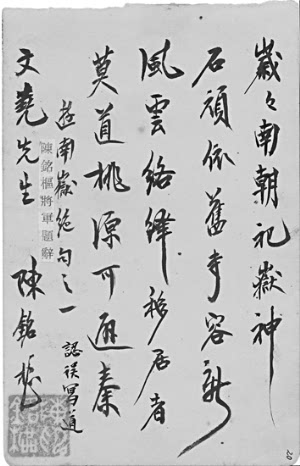 歲々南朝祀嶽神
石頑依舊寺容新
風雲絡繹移居者
莫道桃源可秦
遊南嶽絕句之一
誤寫
陳銘樞將軍題辭
文堯先生 陳銘樞
20